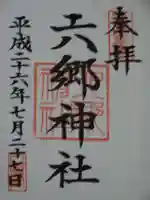 奉拝
六郷神社
平成二十六年七月二十七日